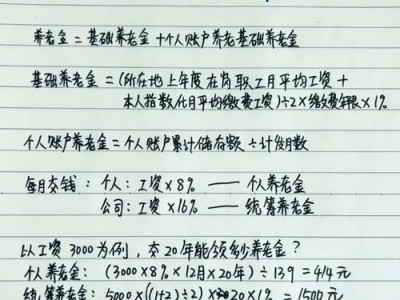 养老金 = 基础养老金 + 个人账户养老基础养老金
基础养老金 = (所在地上年度在岗职工月平均工资 +
本人指数化月平均缴费工资) ÷ 2 × 缴费年限 × 1%
个人账户养老金 = 个人账户累计储存额 ÷ 计发月数
每月交钱: 个人: 工资 × 8% —— 个人养老金
公司: 工资 × 16% —— 统筹养老金
以工资 3000 为例, 交 20 年能领多少养老金?
个人养老金: (3000 × 8% × 12月 × 20年) ÷ 139 = 414 元
统筹养老金: 5000 × ((1+2) ÷ 2) × 20 × 1% = 1500 元